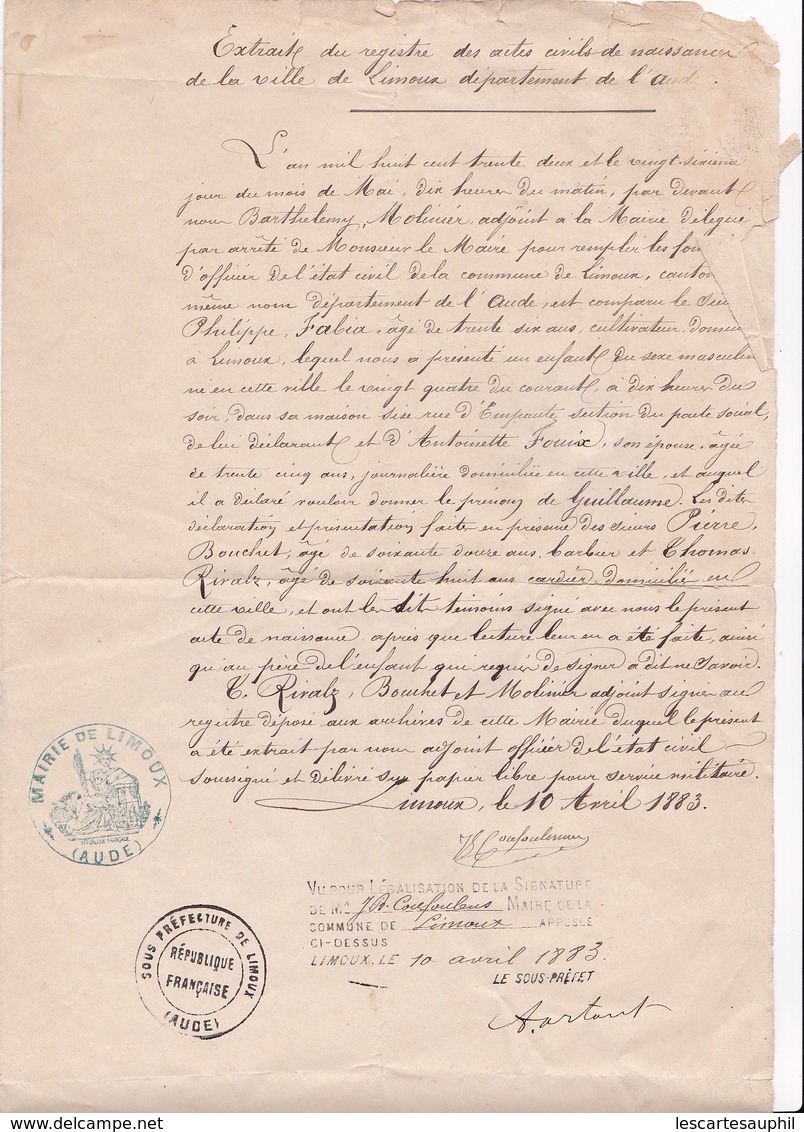 Extrait du registre des actes civils de naissances
de la ville de Limoux département de l'Aude.
L'an mil huit cent trente deux et le vingt-sixième
jour du mois de Mai, dix heures du matin, par devant
nous Barthelemy, Molinier, adjoint à la Mairie délégué
par arrêté de Monsieur le Maire pour remplir les fon
d'officier de l'état civil de la commune de Limoux, canton
même nom département de l'Aude, est comparu le Sieu
Philippe, Fabia, âgé de trente six ans, cultivateur, domici
à Limoux, lequel nous a présenté un enfant du sexe masculin
né en cette ville le vingt quatre du courant à dix heures du
soir, dans sa maison sise rue d'Empauté, section du pacte social,
de lui déclarant et d'Antoinette Fouix, son épouse, âgée
de trente cinq ans, journalière domiciliée en cette ville, et auquel
il a déclaré vouloir donner le prénom de Guillaume. Les dites
déclaration et présentation faites en présence des sieurs Pierre,
Bouchet, âgé de soixante douze ans, barbier et Thomas
Rivalz, âgé de soixante huit ans cardeur, domiciliés en
cette ville, et ont les dits témoins signé avec nous le présent
acte de naissance après que lecture leur en a été faite, ainsi
qu'au père de l'enfant qui requis de signer a dit ne savoir.
T. Rivalz, Bouchet et Molinier adjoint signés au
registre déposé aux archives de cette Mairie duquel le présent
a été extrait par nous adjoint officier de l'état civil
soussigné et délivré sur papier libre pour service militaire.
Limoux, le 10 Avril 1883.
MAIRIE DE LIMOUX
RÉPUBLIQUE FRANÇAISE
(AUDE)
VU POUR LÉGALISATION DE LA SIGNATURE
DE Mr J.B. Coufoulens MAIRE DE LA
COMMUNE DE Limoux APPOSÉE
CI-DESSUS
LIMOUX, LE 10 avril 1883.
LE SOUS-PRÉFET
SOUS PRÉFECTURE DE LIMOUX
RÉPUBLIQUE
FRANÇAISE
(AUDE)
lescartesauphil